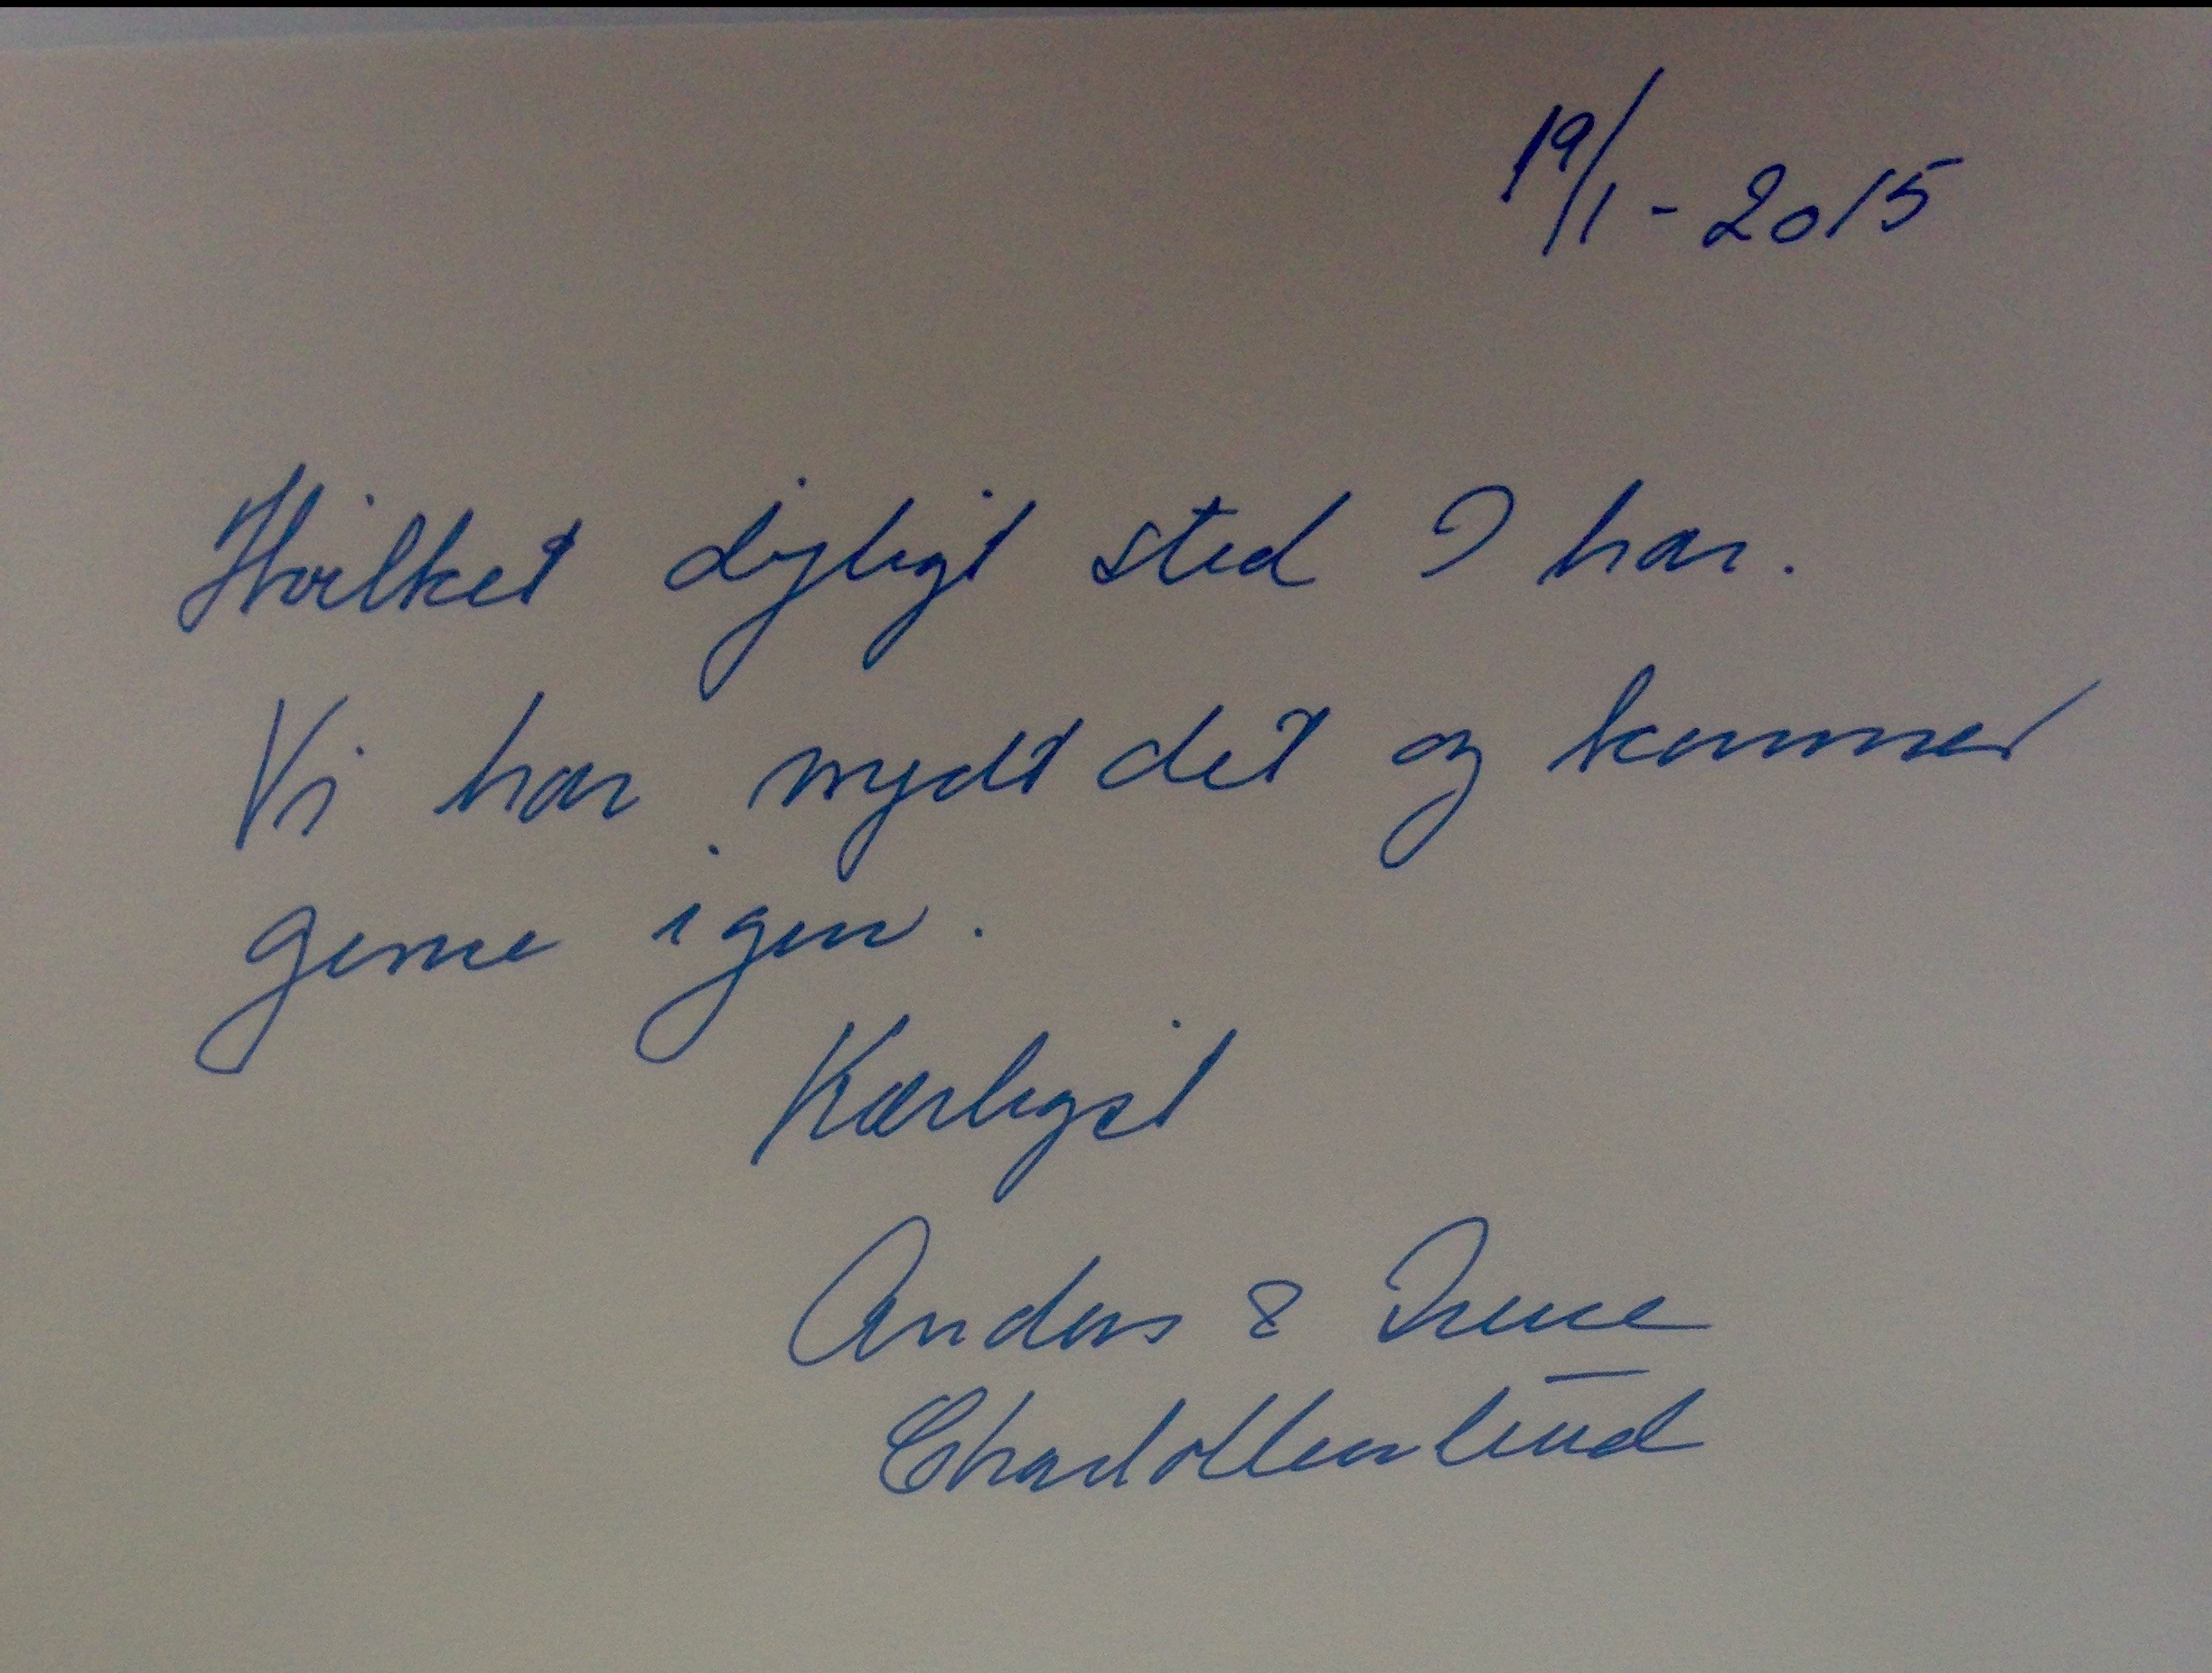 19/1 - 2015
Hvilket dejligt sted I har.
Vi har nydt det og kommer
gerne igen.
Kærligst
Anders & Irene
Charlottenlund